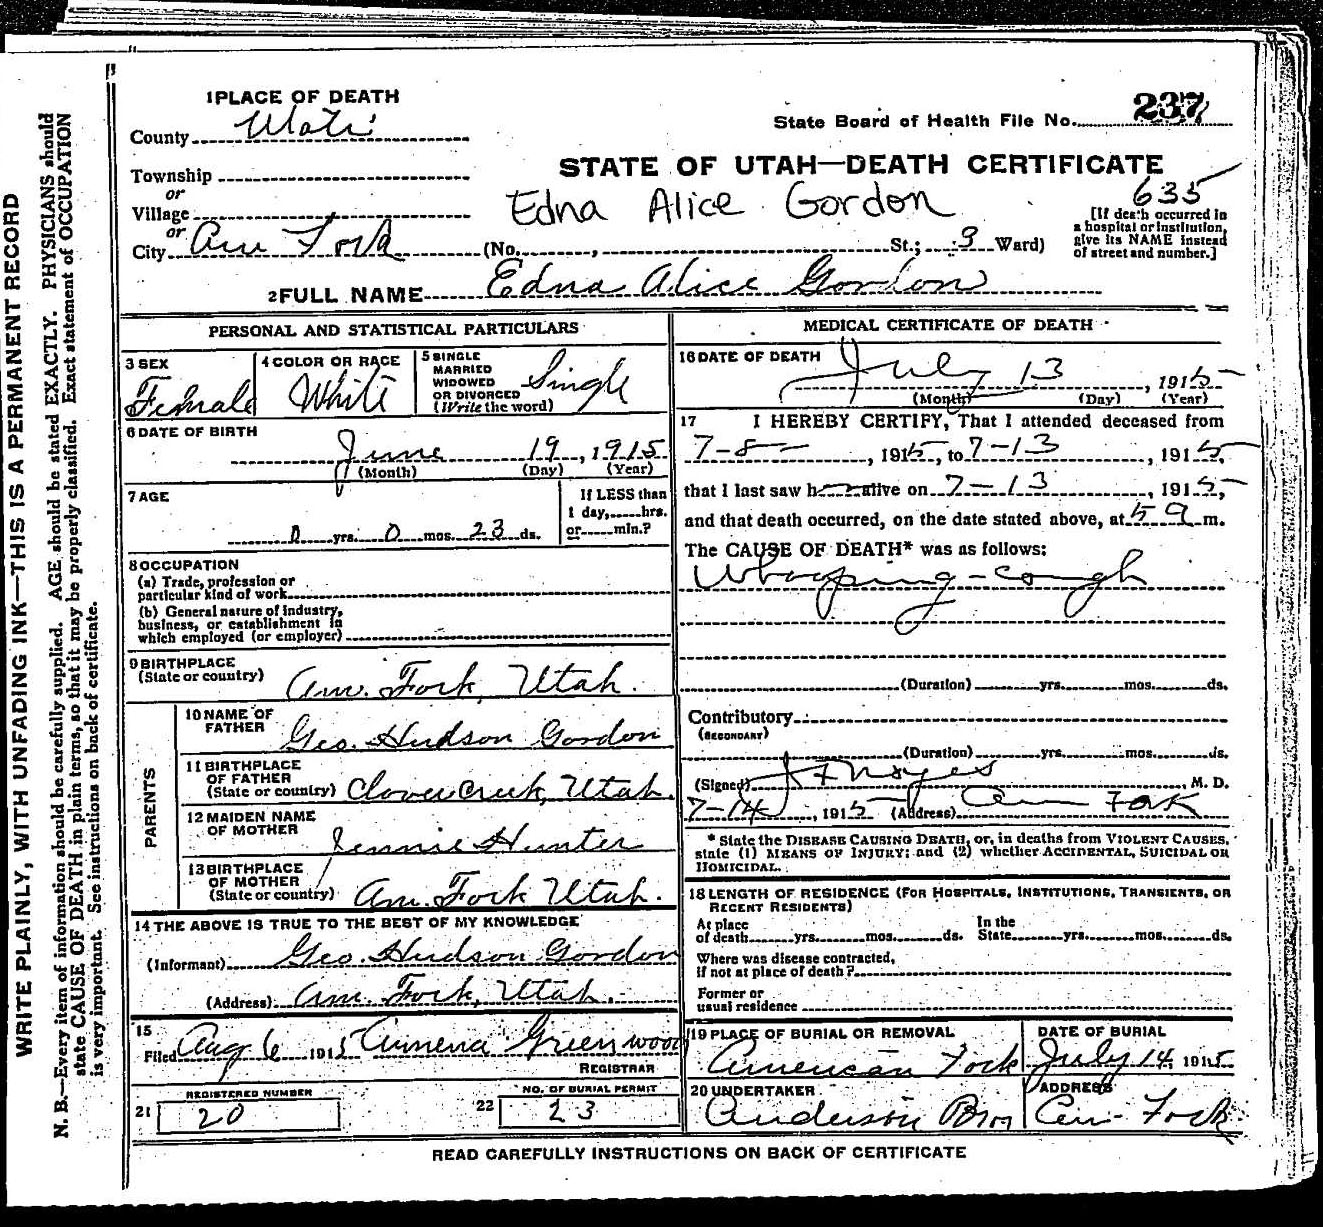 WRITE PLAINLY, WITH UNFADING INK—THIS IS A PERMANENT RECORD
N. B.—Every item of information should be carefully supplied. AGE should be stated EXACTLY. PHYSICIANS should
state CAUSE OF DEATH in plain terms, so that it may be properly classified. Exact statement of OCCUPATION
is very important. See instructions on back of certificate.
1 PLACE OF DEATH
County
State Board of Health File No. 237
STATE OF UTAH—DEATH CERTIFICATE
Township
or
Village
Edna Alice Gordon
635
[If death occurred in
a hospital or institution,
give its NAME instead
of street and number.]
or
City Am Fork (No. , St.; 3 Ward)
2 FULL NAME Edna Alice Gordon
PERSONAL AND STATISTICAL PARTICULARS
3 SEX
Female
4 COLOR OR RACE
White
5 SINGLE
MARRIED
WIDOWED
OR DIVORCED
(Write the word)
Single
6 DATE OF BIRTH
June 19, 1915
(Month) (Day) (Year)
7 AGE
0 yrs. 0 mos. 23 ds.
If LESS than
1 day, hrs.
or min.?
8 OCCUPATION
(a) Trade, profession or
particular kind of work
(b) General nature of industry,
business, or establishment in
which employed (or employer)
9 BIRTHPLACE
(State or country)
Am. Fork, Utah.
PARENTS
10 NAME OF
FATHER
Geo. Hudson Gordon
11 BIRTHPLACE
OF FATHER
(State or country) Clover Creek, Utah.
12 MAIDEN NAME
OF MOTHER
Jennie Hunter
13 BIRTHPLACE
OF MOTHER
(State or country) Am. Fork Utah.
14 THE ABOVE IS TRUE TO THE BEST OF MY KNOWLEDGE
(Informant) Geo. Hudson Gordon
(Address) Am. Fork, Utah.
15
Filed Aug 6 1915 Greenwood
REGISTRAR
REGISTERED NUMBER
21 20
NO. OF BURIAL PERMIT
22 23
MEDICAL CERTIFICATE OF DEATH
16 DATE OF DEATH July 13, 1915
(Month) (Day) (Year)
17 I HEREBY CERTIFY, That I attended deceased from
7-8-, 1915, to 7-13, 1915,
that I last saw her alive on 7-13, 1915,
and that death occurred, on the date stated above, at 5 a m.
The CAUSE OF DEATH* was as follows:
Whooping-cough
(Duration) yrs. mos. ds.
Contributory
(SECONDARY)
(Duration) yrs. mos. ds.
(Signed) Noyes, M. D.
7-14, 1915 (Address) Am Fork
* State the DISEASE CAUSING DEATH, or, in deaths from VIOLENT CAUSES,
state (1) MEANS OF INJURY; and (2) whether ACCIDENTAL, SUICIDAL OR
HOMICIDAL.
18 LENGTH OF RESIDENCE (FOR HOSPITALS, INSTITUTIONS, TRANSIENTS, OR
RECENT RESIDENTS)
At place In the
of death yrs. mos. ds. State yrs. mos. ds.
Where was disease contracted,
if not at place of death?
Former or
usual residence
19 PLACE OF BURIAL OR REMOVAL
American Fork
DATE OF BURIAL
July 14, 1915
20 UNDERTAKER
Anderson Bros
ADDRESS
Am. Fork
READ CAREFULLY INSTRUCTIONS ON BACK OF CERTIFICATE